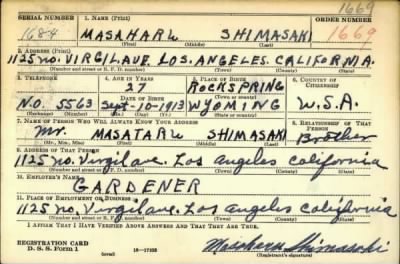 1669
SERIAL NUMBER 1. NAME (Print) ORDER NUMBER
1684 MASAHARU SHIMASAKI 1669
(First) (Middle) (Last)
2. ADDRESS (Print)
1125 NO. VIRGIL AVE. LOS. ANGELES. CALIFORNIA.
(Number and street or R. F. D. number) (Town) (County) (State)
3. TELEPHONE 4. AGE IN YEARS 5. PLACE OF BIRTH 6. COUNTRY OF CITIZENSHIP
27 ROCKSPRING
DATE OF BIRTH
NO. 5563 Sept-10-1913 WYOMING U.S.A.
(Exchange) (Number) (Mo.) (Day) (Yr.) (State or country)
7. NAME OF PERSON WHO WILL ALWAYS KNOW YOUR ADDRESS 8. RELATIONSHIP OF THAT PERSON
Mr. MASATARU SHIMASAKI Brother
(Mr., Mrs., Miss) (First) (Middle) (Last)
9. ADDRESS OF THAT PERSON
1125 no. Virgil ave. Los Angeles California
(Number and street or R. F. D. number) (Town) (County) (State)
10. EMPLOYER'S NAME
GARDENER
11. PLACE OF EMPLOYMENT OR BUSINESS
1125 no. Virgil ave. Los Angeles California
(Number and street or R. F. D. number) (Town) (County) (State)
I AFFIRM THAT I HAVE VERIFIED ABOVE ANSWERS AND THAT THEY ARE TRUE.
REGISTRATION CARD
D. S. S. Form 1 (over) 16-17105 Masaharu Shimasaki
(Registrant's signature)